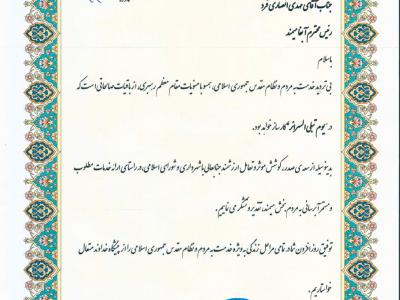 جناب آقای مهدی انصاری فرد
رئیس محترم آبفا میمند
با سلام
بی تردید خدمت به مردم و نظام مقدس جمهوری اسلامی، همسو با منویات مقام معظم رهبری، از باقیات صالحاتی است که
در "یوم تبلی السرائر" کارساز خواهد بود.
بدینوسیله از سعه صدر، کوشش موثر و تعامل ارزشمند جنابعالی با شهرداری و شورای اسلامی، در راستای ارائه خدمات مطلوب
و مستمر آبرسانی به مردم بخش میمند، تقدیر و تشکر می نماییم.
توفیق روز افزون شما در تمامی مراحل زندگی به ویژه خدمت به مردم و نظام مقدس جمهوری اسلامی را از پیشگاه خداوند متعال
خواستاریم.